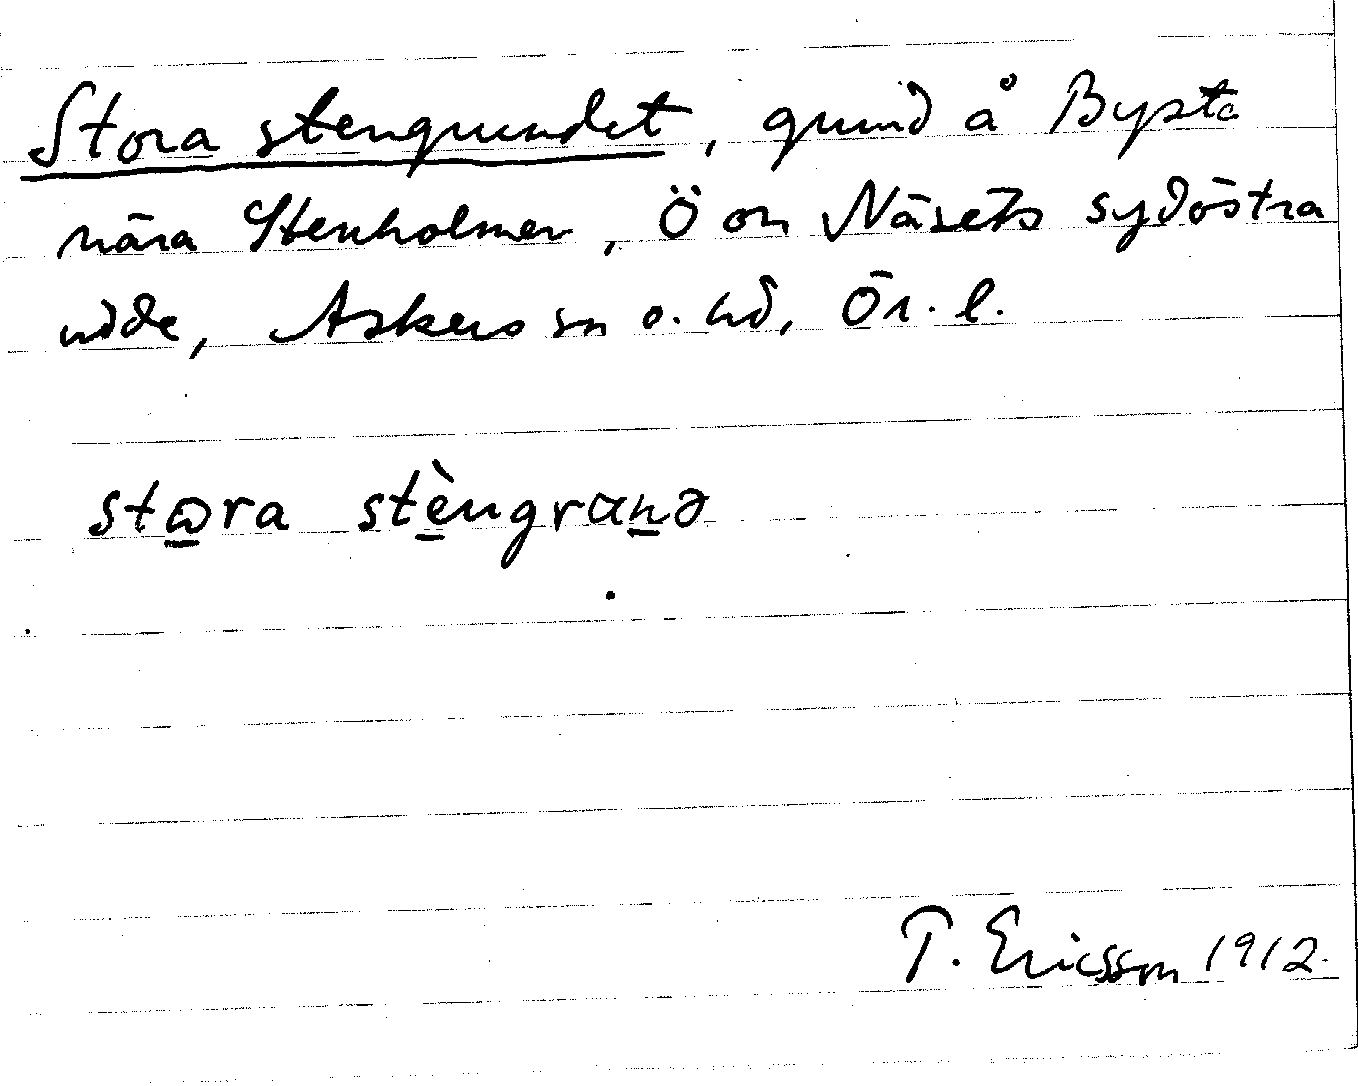 Stora stengrundet, grund å Bysta
nära Stenholmen, Ö om Näsets sydöstra
udde, Askers sn o. hd, Ör. l.
stɷra stèngrund̲ə
T. Ericsson 1912.